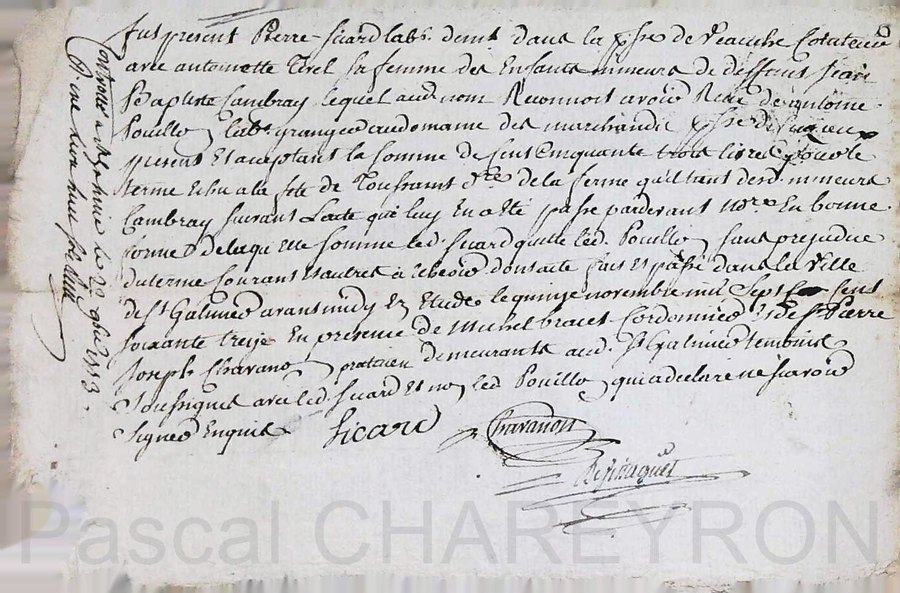 fut present Pierre Sicard lab.r dem.t dans la p.sse de Veauche
avec antoinette Tirel sa femme des Enfants mineurs de deffunt Jean
Baptiste Cambray lequel aud. nom Reconnoit avoir Reçu de antoine
Pouillon lab.r granger au domaine des marchands p.sse de
present Et aceptant la somme de Cent Cinquante trois livres pour le
terme Echu a la fete de Toussaints d.re de la ferme qu'il tient desd. mineurs
Cambray suivant L'acte qui luy En a Eté passé pardevant no.re En bonne
forme De laquelle somme led. Sicard quitte led. Pouillon sans prejudice
du terme Courant Et autres a Echeoir dont acte fait Et passé dans la Ville
de St Galmier avant midy En Etude le quinze novembre mil Sept Cens
soixante treize En presence de Michel bravet Cordonnier de St Pierre
Joseph Chavanon praticien demeurants aud. St Galmier temoins
Soussignés avec led. Sicard Et non led. Pouillon qui a declaré ne sçavoir
signer Enquis
Sicard
Chavanon
Controllé a St galmier le 22 9bre 1773.
Reçu
Pascal CHAREYRON